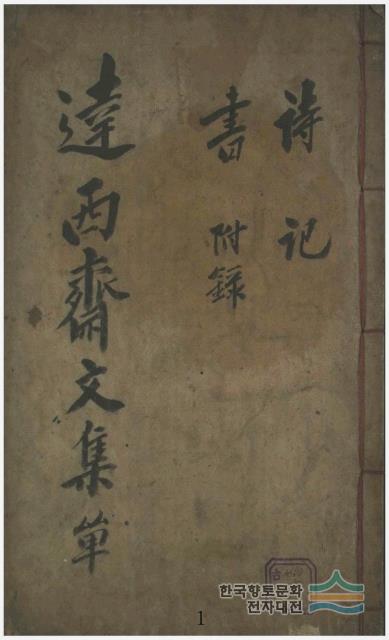 詩 記
書 附錄
達西齋文集 單
古
한국향토문화
전자대전
1